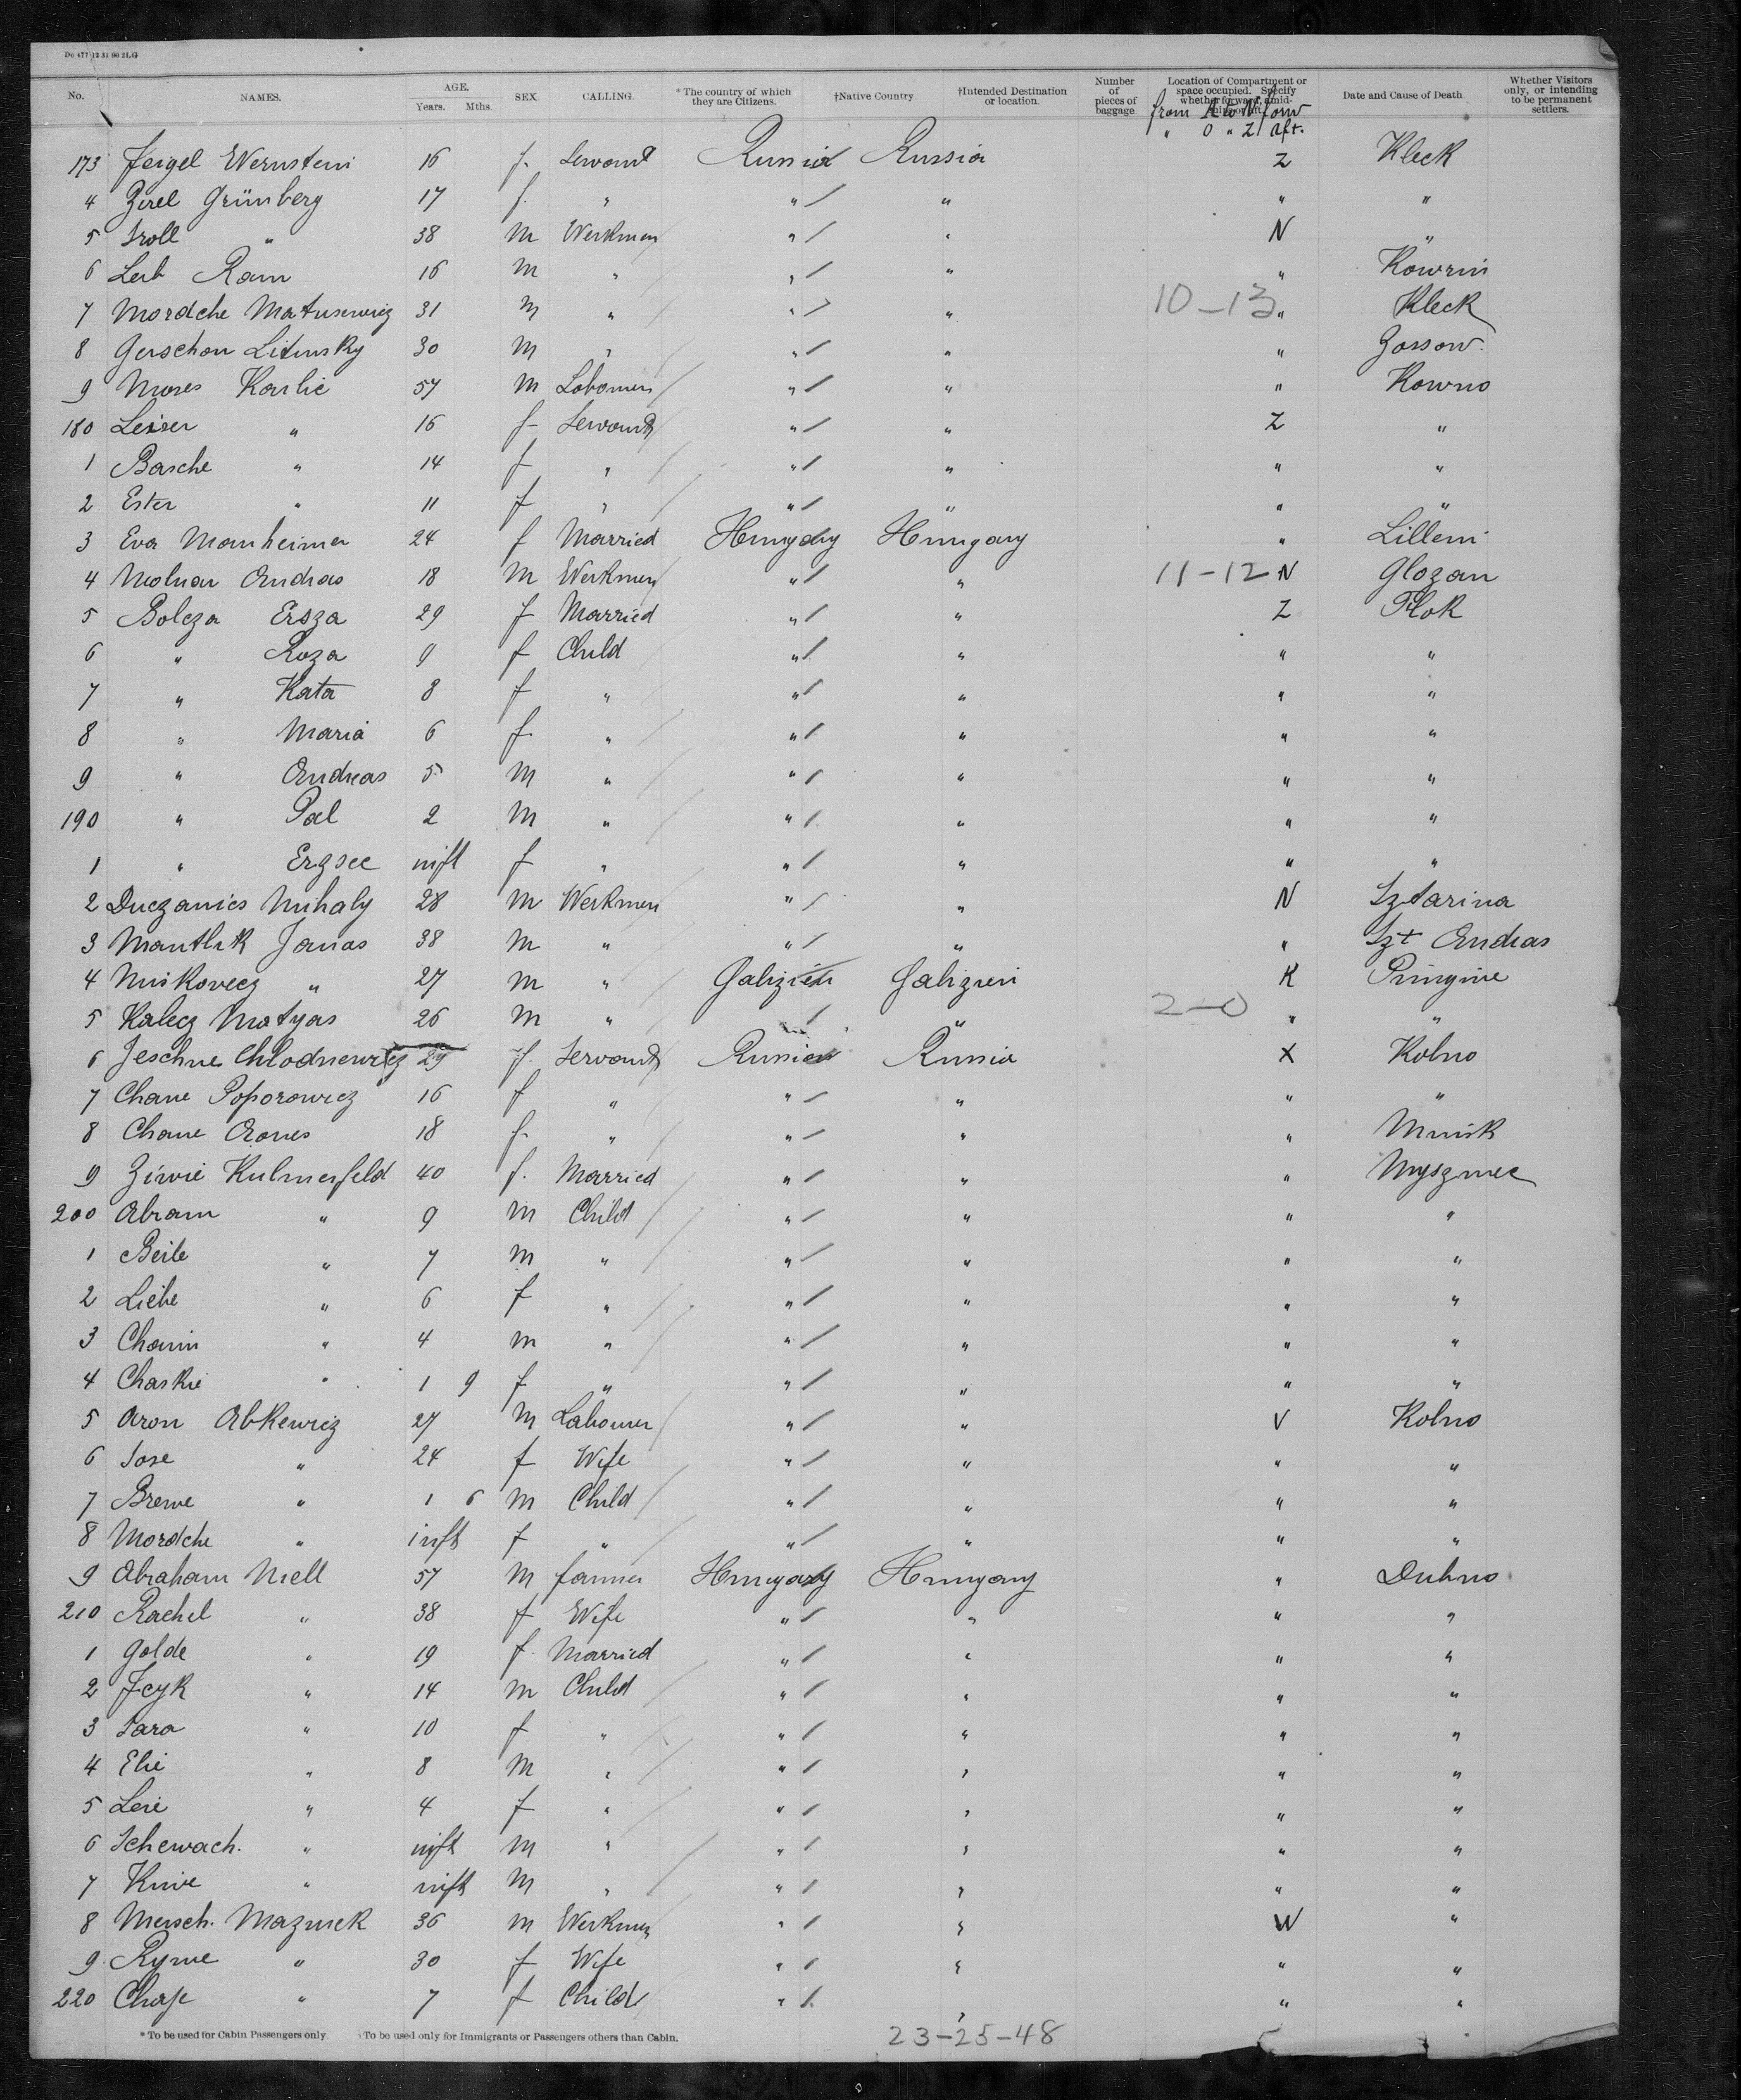 Do 477 12 31 96 2LG
No. NAMES. AGE. Years. Mths. SEX. CALLING. *The country of which they are Citizens. †Native Country †Intended Destination or location. Number of pieces of baggage Location of Compartment or space occupied. Specify whether forward, amid- Date and Cause of Death. Whether Visitors only, or intending to be permanent settlers.
from A to N forw
" O " Z aft.
173 Feigel Wernstein 16 f. Servant Russia Russia Z Kleck
4 Zirel Grünberg 17 f. " " " " "
5 Sroll " 38 m Werkmen " " N "
6 Leib Ram 16 m " " " "
7 Mordche Matusewicz 31 m " " " 10-13 " Kleck
8 Gerschon Litinsky 30 m " " " " Zossow.
9 Moses Karlic 57 m " " " Kowno
180 Leiser " 16 f Servants " " Z "
1 Basche " 14 f " " " " "
2 Ester " 11 f " " " " "
3 Eva Manheimer 24 f Married Hungary Hungary "
4 Molnar Andras 18 m Werkmen " " 11-12 N Glozan
5 Bolcza Ersza 29 f Married " " Z Plok
6 " Roza 9 f Child " " " "
7 " Kata 8 f " " " " "
8 " Maria 6 f. " " " " "
9 " Andreas 5 m " " " " "
190 " Pal 2 m " " " " "
1 " Erzsee inft f " " " " "
2 Duczanics Mihaly 28 m Werkmen " " N Sztarina
3 Mantlik Janos 38 m " " " " Szt Andras
4 Miskovecz " 27 m " Galizien Galizien K
5 Kalecz Matyas 26 m " " 2-0 " "
6 Jeschne Chlodnewicz 29 f. Servants Russia Russia X Kolno
7 Chane Poporowicz 16 f " " " " "
8 Chane Arones 18 f. " " " " Minsk
9 Ziwie Kulmerfeld 40 f. Married " " " Myszinec
200 Abram " 9 m Child " " " "
1 Beile " 7 m " " " " "
2 Liebe " 6 f " " " " "
3 Chaim " 4 m " " " " "
4 Chaskie " 1 9 f " " " " "
5 Aron Abkewicz 27 m Labourer " " V Kolno
6 Sose " 24 f Wife " " " "
7 Brewe " 1 6 m Child " " " "
8 Mordche " inft f " " " " "
9 Abraham Niell 57 m farmer Hungary Hungary " Dubno
210 Rachel " 38 f Wife " " " "
1 Golde " 19 f Married " " " "
2 Jcyk " 14 m Child " " " "
3 Sara " 10 f " " " " "
4 Elie " 8 m " " " " "
5 Leie " 4 f " " " " "
6 Schewach. " inft m " " " " "
7 Kiwe " inft m " " " " "
8 Mersch. Mazurek 36 m Werkmen " " W "
9 Rywe " 30 f Wife " " " "
220 " 7 f Child " " " "
* To be used for Cabin Passengers only. †To be used only for Immigrants or Passengers others than Cabin.
23-25-48